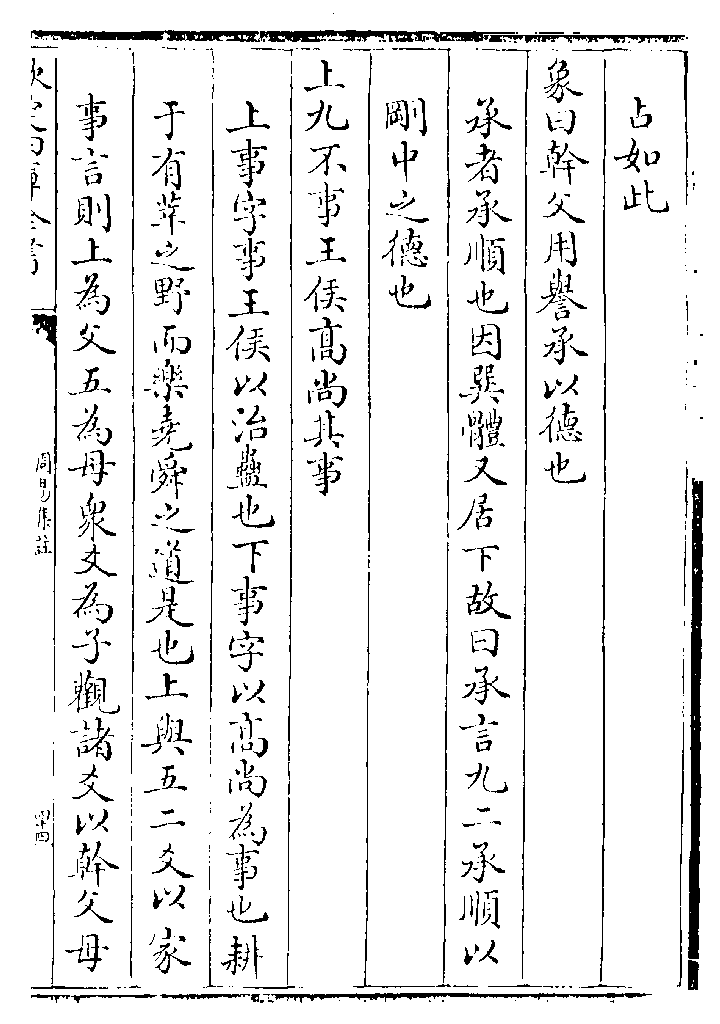 占如此
象曰幹父用譽承以德也
承者承順也因巽體又居下故曰承言九二承順以
剛中之德也
上九不事王侯髙尚其事
上事字事王侯以治蠱也下事字以髙尚為事也耕
于有莘之野而樂堯舜之道是也上與五二爻以家
事言則上為父五為母衆爻為子觀諸爻以幹父母
欽定四庫全書
周易集註
四十四